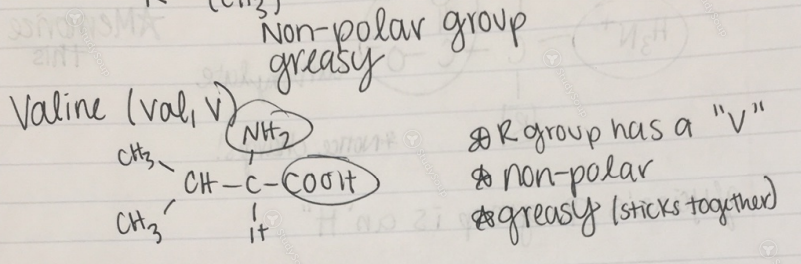 (CH3)
Non-polar group
greasy
Valine (Val, V)
NH2
CH3
CH-C-COOH
CH3
H
R group has a "V"
non-polar
greasy (sticks together)